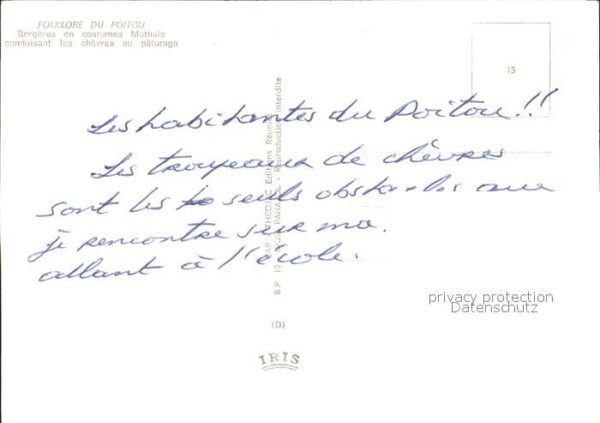 FOLKLORE DU POITOU
Bergères en costumes Mothais
conduisant les chèvres au pâturage
15
Les habitantes du Poitou!!
Les troupeaux de chèvres
sont les seuls obstacles que
je rencontre sur ma
allant à l'école.
THEOJAC Editions Réunies
Reproduction interdite
B.P. 15
(D)
IRIS
privacy protection
Datenschutz